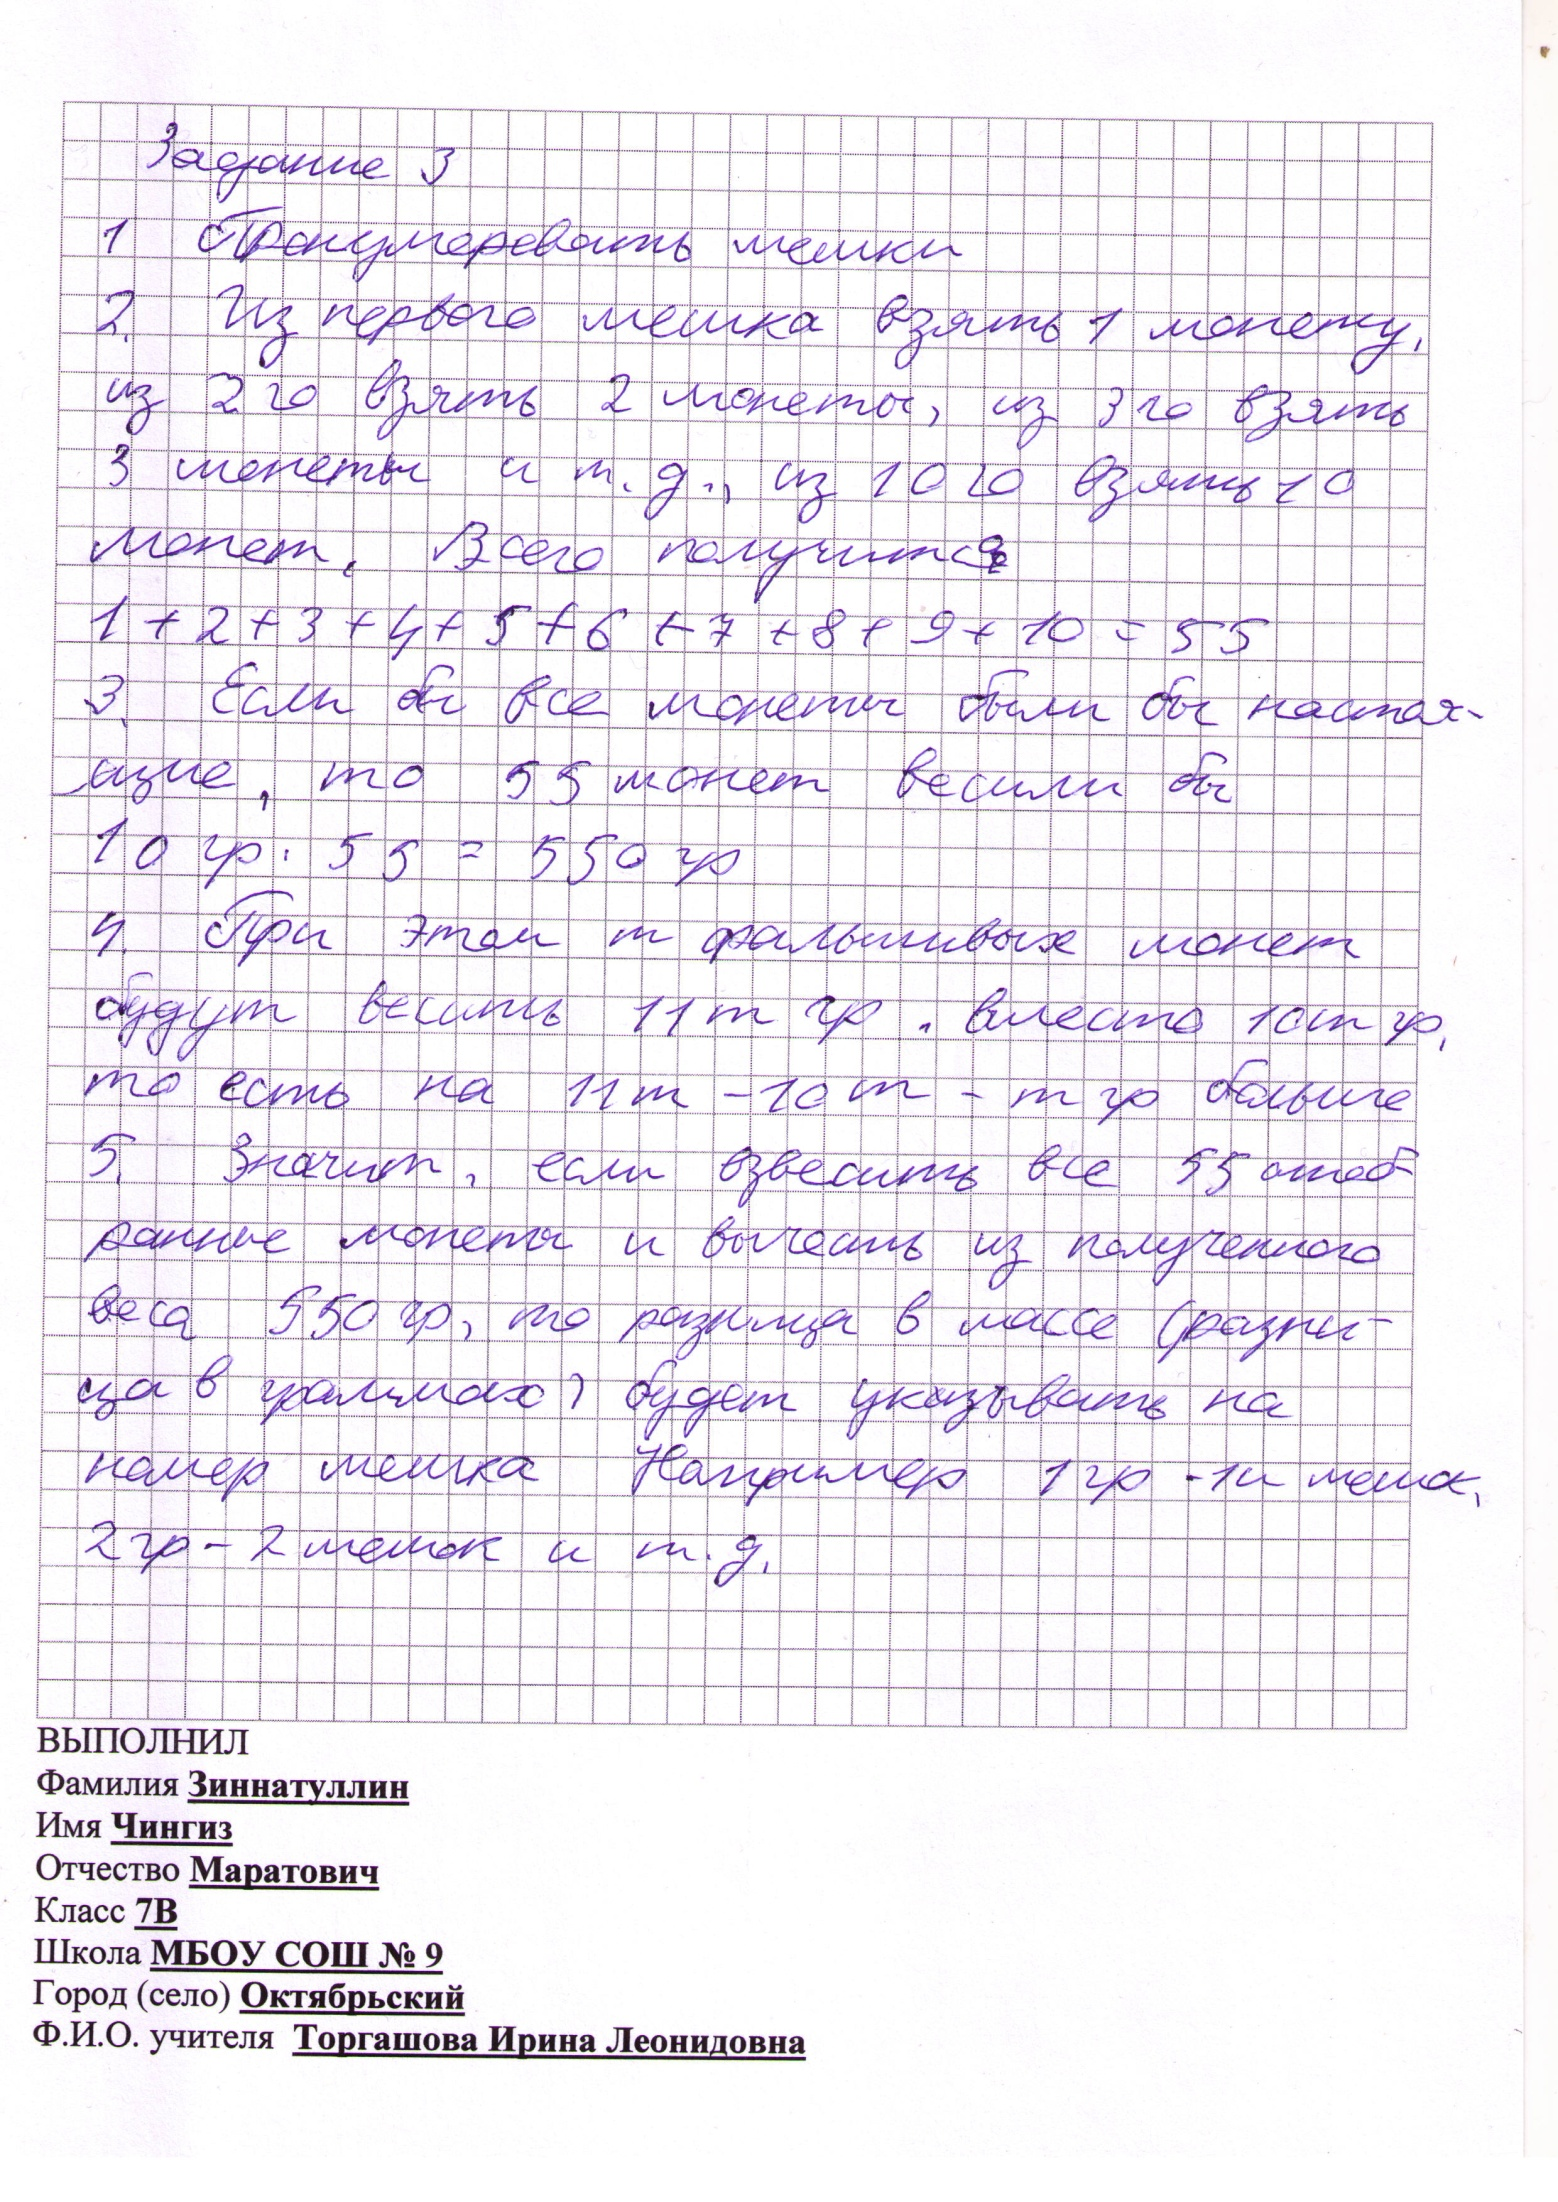 Задание 3
1 Пронумеровать мешки
2. Из первого мешка взять 1 монету,
из 2го взять 2 монеты, из 3го взять
3 монеты и т.д., из 10го взять 10
монет. Всего получится
1+2+3+4+5+6+7+8+9+10=55
3. Если бы все монеты были бы настоя-
щие, то 55 монет весили бы
10 гр. 55 = 550 гр
4. При этом m фальшивых монет
будут весить 11m гр. вместо 10m гр,
то есть на 11m - 10m - m гр больше
5. Значит, если взвесить все 55 отоб-
ранные монеты и вычесть из полученного
веса 550 гр, то разница в массе (разни-
ца в граммах) будет указывать на
номер мешка Например 1 гр - 1й мешок,
2 гр - 2 мешок и т.д.
ВЫПОЛНИЛ
Фамилия Зиннатуллин
Имя Чингиз
Отчество Маратович
Класс 7В
Школа МБОУ СОШ № 9
Город (село) Октябрьский
Ф.И.О. учителя Торгашова Ирина Леонидовна